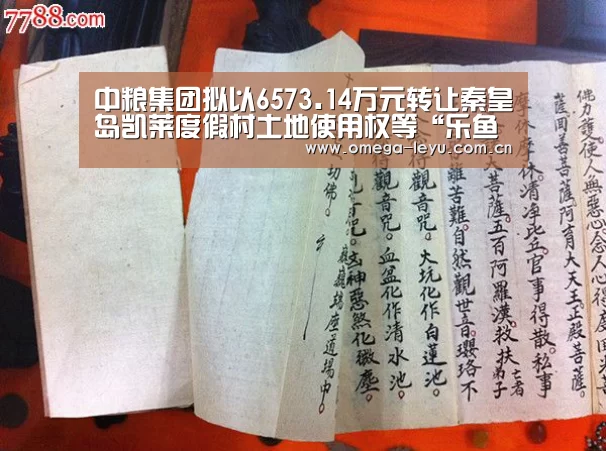 7788.com
中粮集团拟以6573.14万元转让秦皇
岛凯莱度假村土地使用权等“乐鱼
www.omega-leyu.com.cn
佛力護。使人無惡心。念人心得度
薩。阿育大天王。正殿菩薩。
摩休摩休。清淨比丘。官事得散。私事
大菩薩。五百阿羅漢。救扶弟子亡者
離苦難。自然觀世音。瓔珞不
得觀音咒。大坑化作白蓮池。
得觀音咒。血盆化作清水池。
咒。神惡煞化微塵。
切佛。巍巍端座道場中。